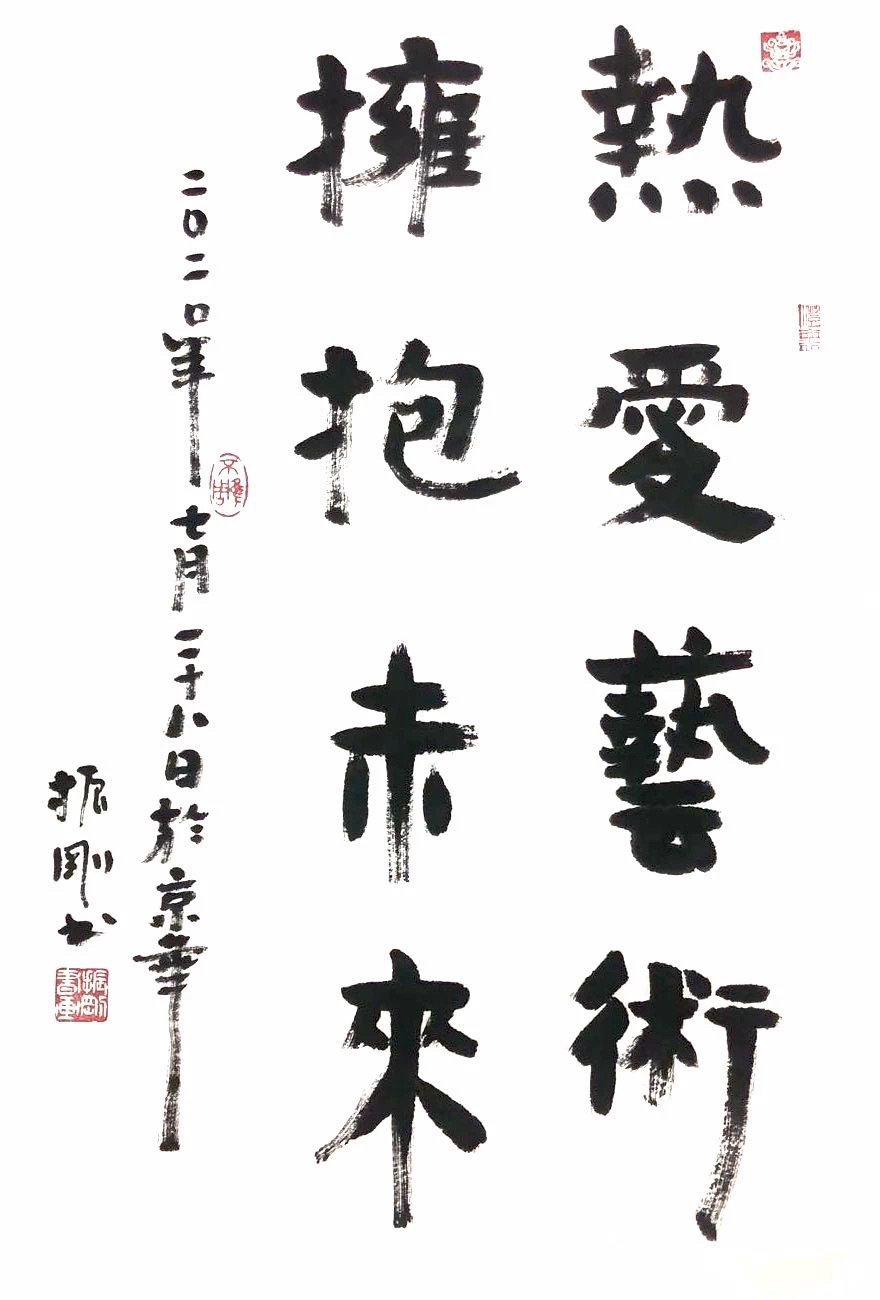 熱愛藝術
擁抱未來
二〇二〇年七月二十八日於京華
振剛书
振剛書